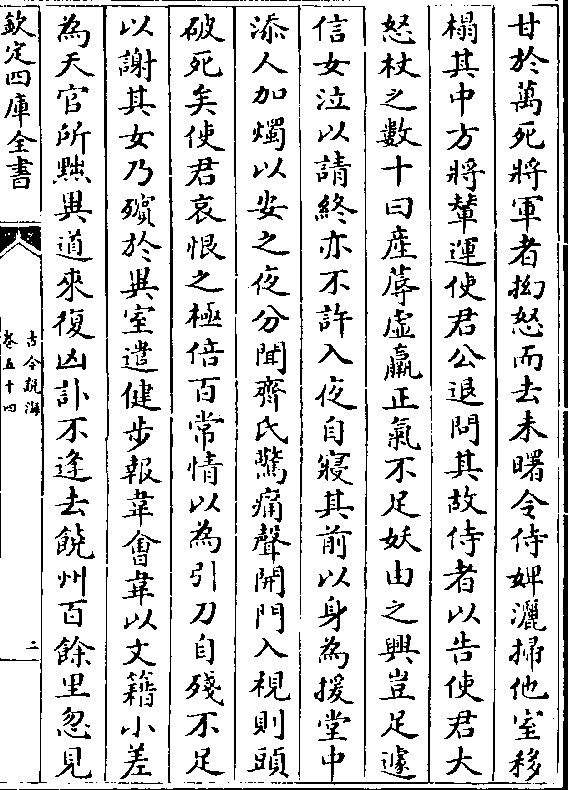 甘於萬死將軍者拗怒而去未曙令侍婢灑掃他室移
榻其中方將輦運使君公退問其故侍者以告使君大
怒杖之數十曰産蓐虚羸正氣不足妖由之興豈足遽
信女泣以請終亦不許入夜自寢其前以身為援堂中
添人加燭以安之夜分聞齊氏驚痛聲開門入視則頭
破死矣使君哀恨之極倍百常情以為引刀自殘不足
以謝其女乃殯於異室遣健步報韋會韋以文籍小差
為天官所黜異道來復凶訃不逢去饒州百餘里忽見
欽定四庫全書
古今説海
卷五十四
二